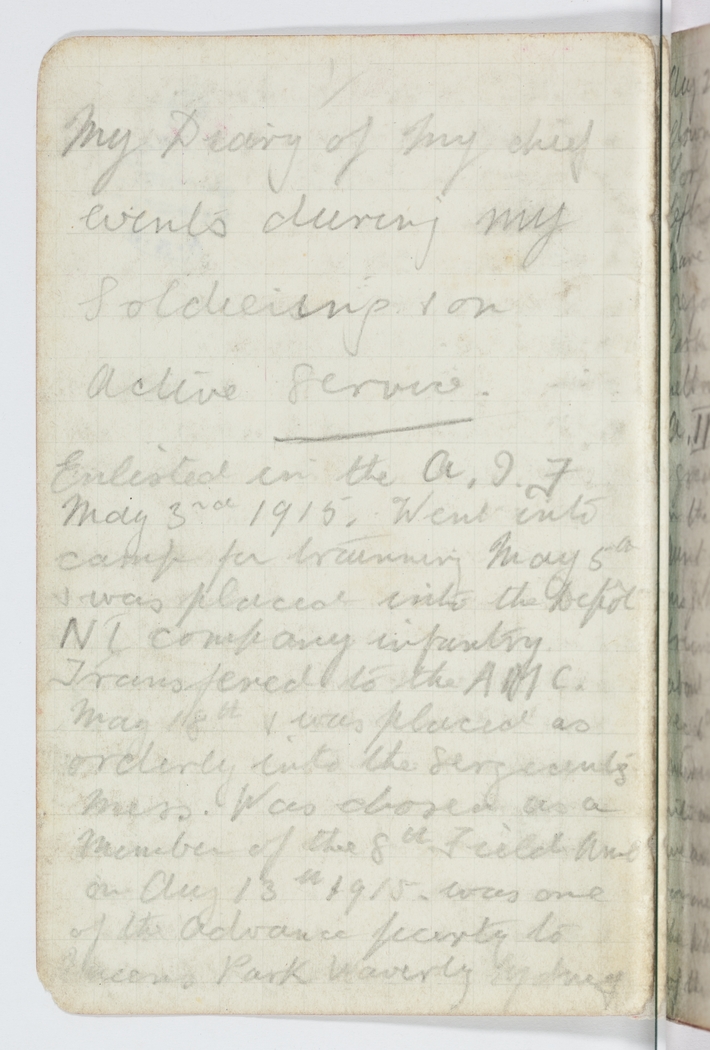 My Diary of My chief
events during my
Soldiering & on
Active Service.
Enlisted in the A.I.F
May 3rd 1915. Went into
camp for trainning May 5th
& was placed into the Depôt
N I company infantry
Transfered to the AMC.
May 18th & was placed as
orderly into the Sergeants
Mess. Was chosen as a
Member of the 8th Field Amb
on Aug 13th 1915. was one
of the advance party to
Queens Park Waverly Sydney